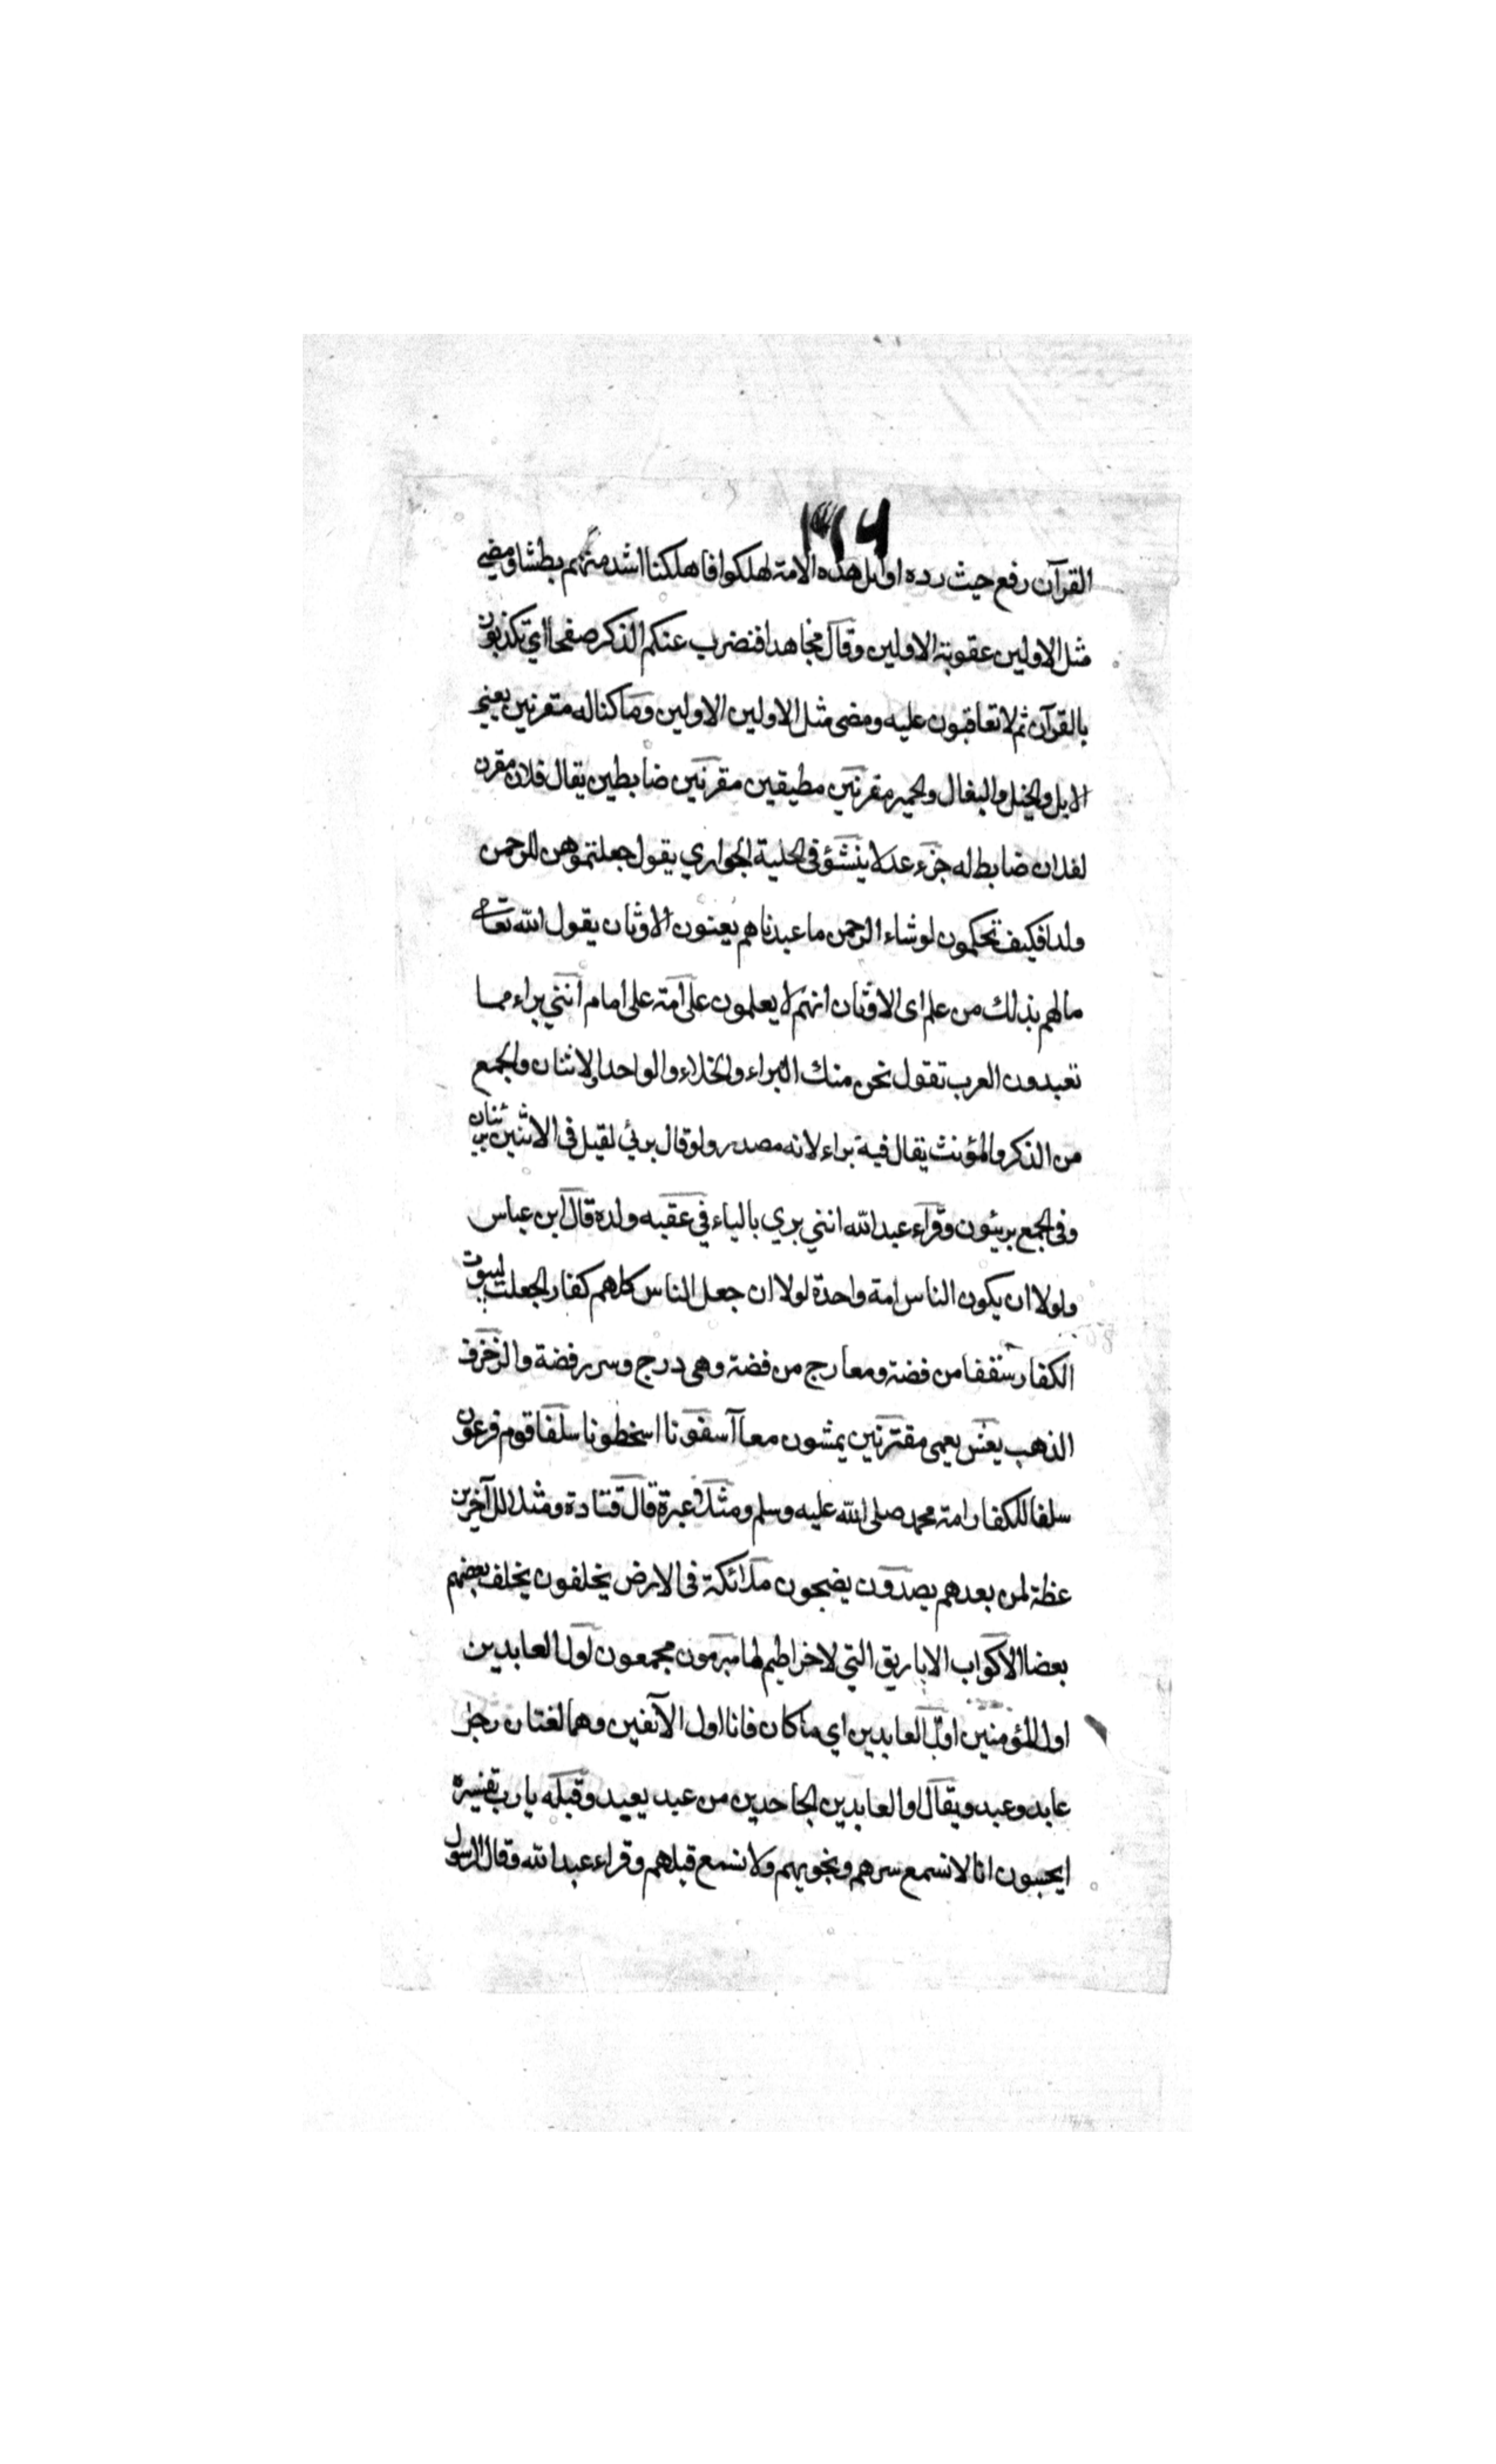 القرآن رفع حيث رده اوايل هذه الامة لهلكوا فاهلكنا اشد منهم بطشا ومضى
مثل الاولين عقوبة الاولين وقال مجاهد افنضرب عنكم الذكر صفحا اي تكذبون
بالقرآن ثم لا تعاقبون عليه ومضى مثل الاولين الاولين وما كنا له مقرنين يعني
الابل والخيل والبغال والحمير مقرنين مطيقين مقرنين ضابطين يقال فلان مقرن
لفلان ضابط له جزء عدلا ينشؤ في الحلية الجواري يقول جعلتموهن للرحمن
ولدا فكيف تحكمون لو شاء الرحمن ما عبدناهم يعنون الاوثان يقول الله تعالى
مالهم بذلك من علم اى الاوثان انهم لا يعلمون على امة على امام انني براء مما
تعبدون العرب تقول نحن منك البراء والخلاء والواحد والاثنان والجمع
من الذكر والمؤنث يقال فيه براء لانه مصدر ولو قال برئي لقيل في الاثنين بريئان
وفى الجمع بريئون وقراء عبد الله انني بري بالياء في عقبه ولده قال ابن عباس
ولولا ان يكون الناس امة واحدة لولا ان جعل الناس كلهم كفار لجعلت لبيوت
الكفار سقفا من فضة ومعارج من فضة وهى درج وسرر فضة والزخرف
الذهب يعش يعمى مقترنين يمشون معا آسفونا اسخطونا سلفا قوم فرعون
سلفا للكفار امة محمد صلى الله عليه وسلم ومثلا عبرة قال قتادة ومثلا للآخرين
عظة لمن بعدهم يصدون يضجون ملائكة فى الارض يخلفون يخلف بعضهم
بعضا الاكواب الاباريق التي لا خراطيم لها مبرمون مجمعون اول العابدين
اول المؤمنين اول العابدين اي ما كان فانا اول الآنفين وهما لغتان رجل
عابد وعبد ويقال اول العابدين الجاحدين من عبد يعبد وقيله يا رب تفسيره
ايحسبون انا لا نسمع سرهم ونجويهم ولا نسمع قيلهم وقراء عبد الله وقال الرسول